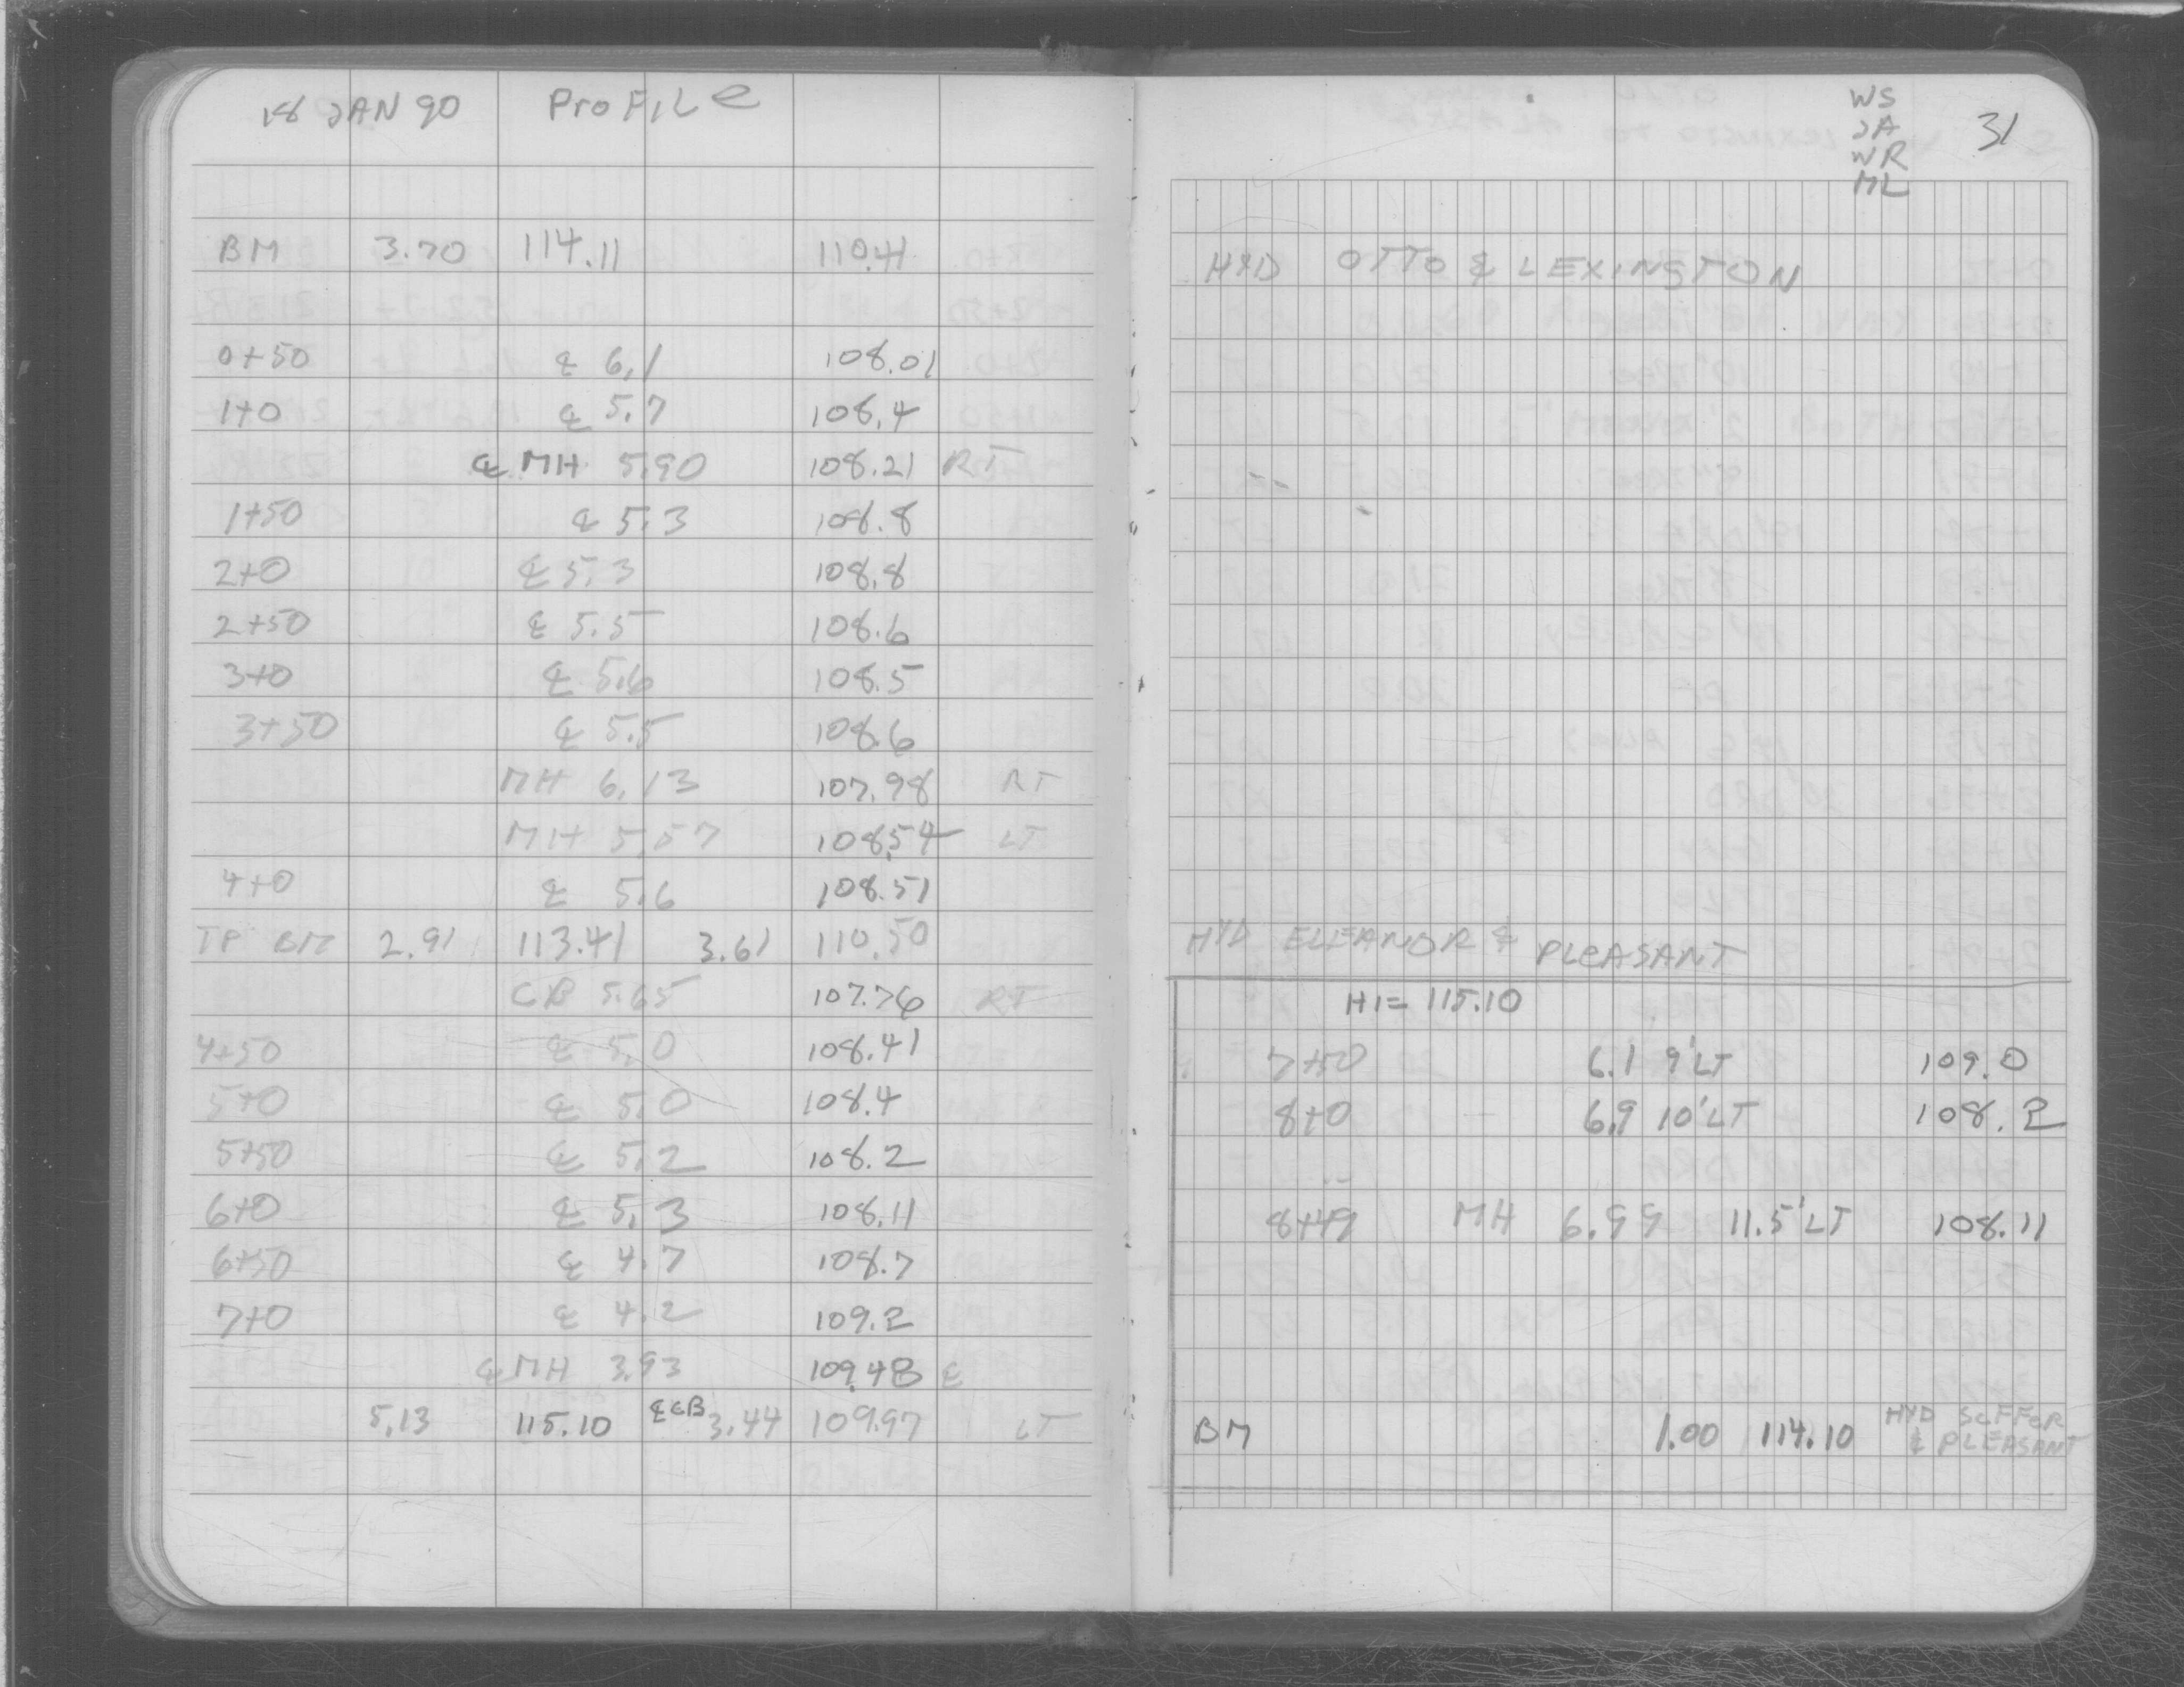 18 JAN 90 PROFILE
BM 3.70 114.11 110.41
0+50 ℄ 6.1 108.01
1+0 ℄ 5.7 108.4
℄ MH 5.90 108.21 RT
1+50 ℄ 5.3 108.8
2+0 ℄ 5.3 108.8
2+50 ℄ 5.5 108.6
3+0 ℄ 5.6 108.5
3+50 ℄ 5.5 108.6
MH 6.13 107.98 RT
MH 5.57 108.54 LT
4+0 ℄ 5.6 108.51
TP BM 2.91 113.41 3.61 110.50
CB 5.65 107.76 RT
4+50 ℄ 5.0 108.41
5+0 ℄ 5.0 108.4
5+50 ℄ 5.2 108.2
6+0 ℄ 5.3 108.11
6+50 ℄ 4.7 108.7
7+0 ℄ 4.2 109.2
℄ MH 3.93 109.48 ℄
5.13 115.10 ℄ CB 3.44 109.97 LT
WS
JA
WR
ML
31
HYD OTTO & LEXINGTON
HYD ELEANOR & PLEASANT
HI = 115.10
7+50 6.1 9' LT 109.0
8+0 6.9 10' LT 108.2
8+49 MH 6.99 11.5' LT 108.11
BM 1.00 114.10 HYD SUFFER
& PLEASANT